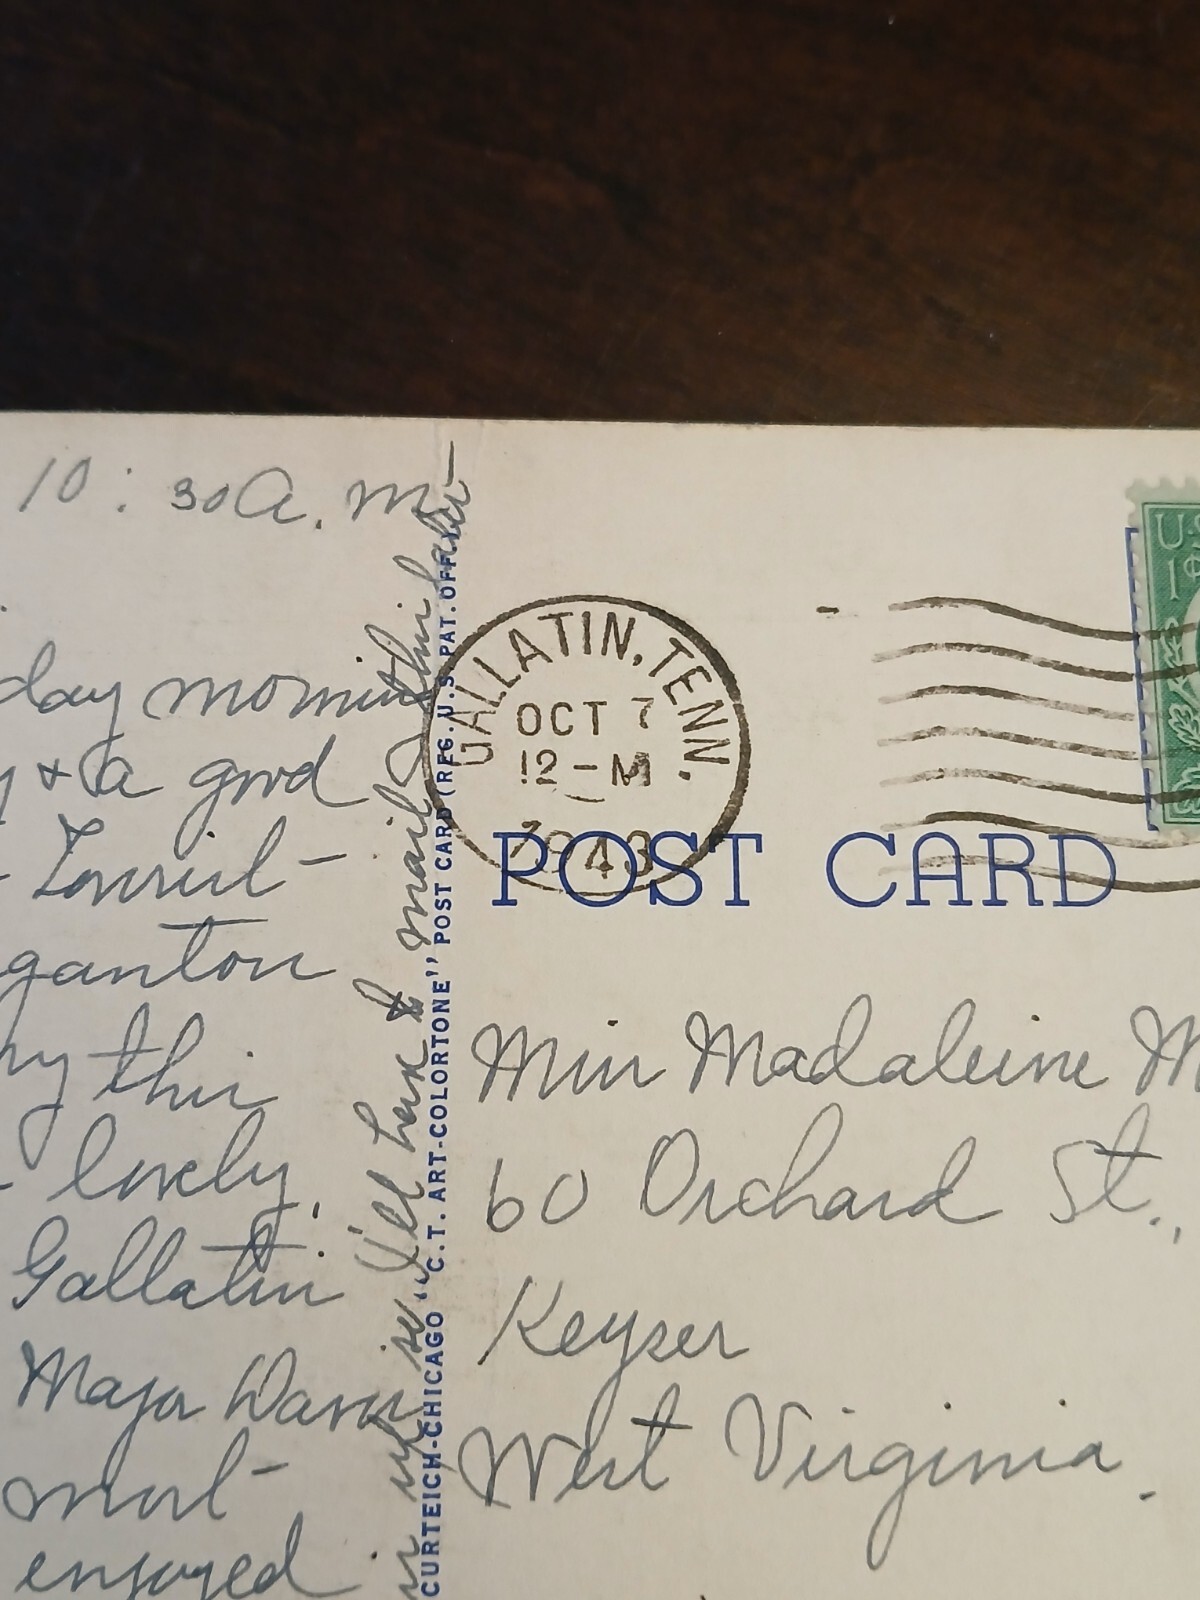 10:30 A.M.
day morning
y & a good
Louisvil-
ganton
this
lovely.
Gallatin
Major Davis
most
enjoyed
up so I'll have to mail this later
CURTEICH-CHICAGO "C.T. ART-COLORTONE" POST CARD (REG. U.S. PAT. OFF.)
GALLATIN, TENN.
OCT 7
12-M
1943
U.S.
1¢
POST CARD
Miss Madaleine M
60 Orchard St.,
Keyser
West Virginia.